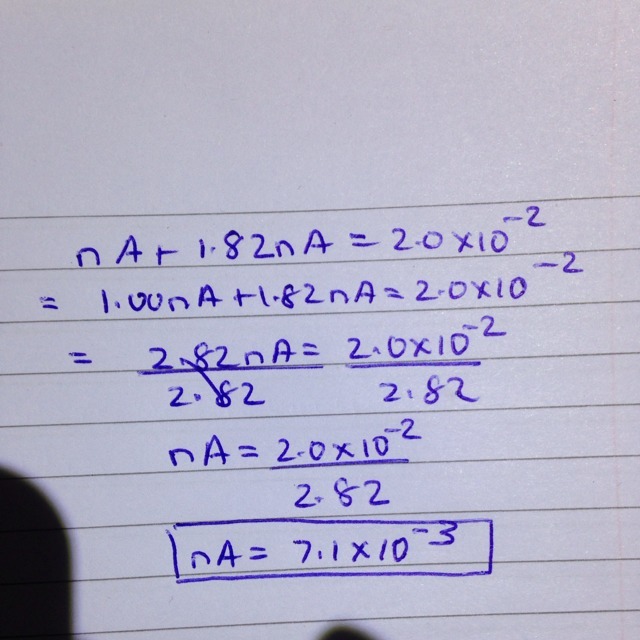 nA + 1.82nA = 2.0×10⁻²
= 1.00nA + 1.82nA = 2.0×10⁻²
= 2.82nA = 2.0×10⁻²
2.82 2.82
nA = 2.0×10⁻²
2.82
nA = 7.1×10⁻³